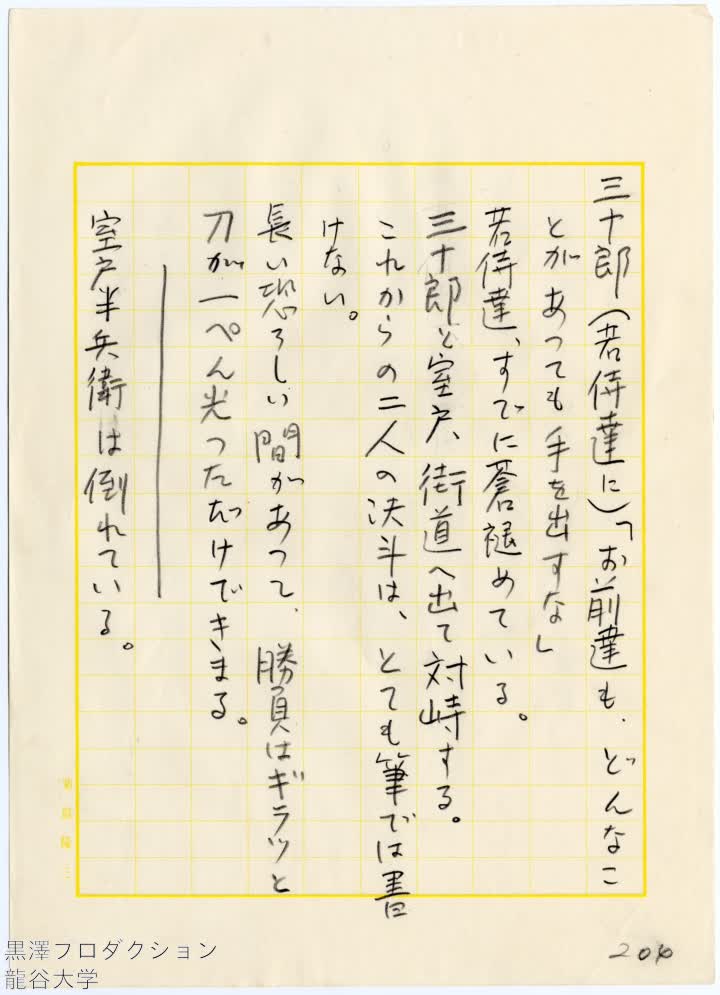 三十郎(若侍達に)「お前達も、どんなこ
とがあっても手を出すな」
若侍達、すでに蒼褪めている。
三十郎と室戸、街道へ出て対峙する。
これからの二人の決斗は、とても筆では書
けない。
長い恐ろしい間があって、勝負はギラッと
刀が一ぺん光っただけできまる。
室戸半兵衛は倒れている。
204
黒澤フロダクション
龍谷大学